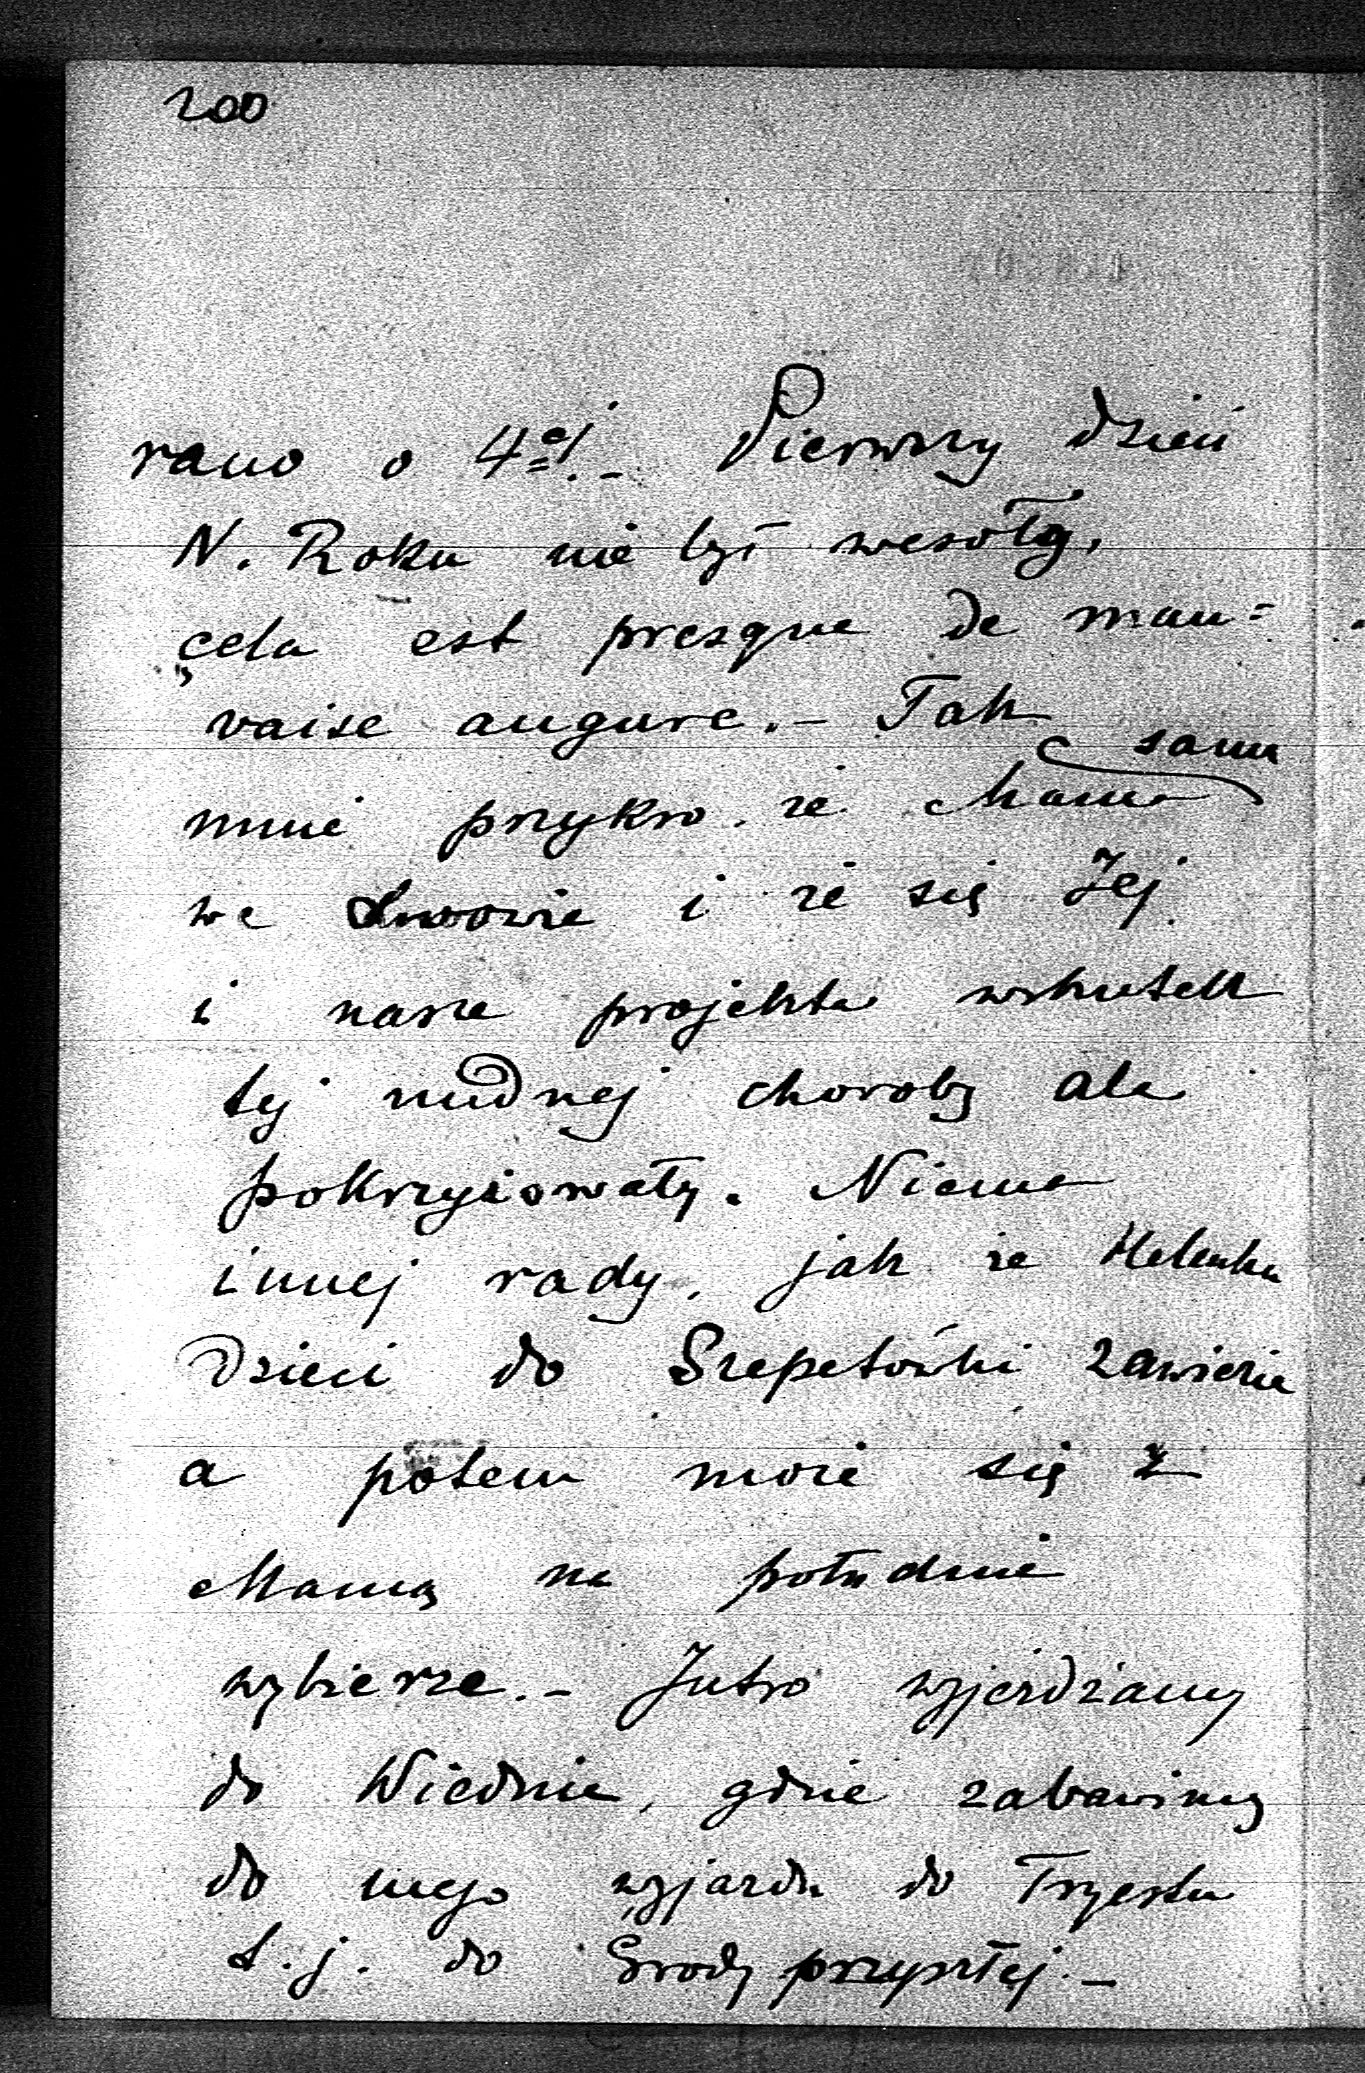 200
rano o 4ej. – Pierwszy dzień
N. Roku nie był wesoły,
cela est presque de mau=
vaise augure. – Tak
mnie przykro, że Mama sama
we Lwowie i że się Jej
i nasze projekta wskutek
tej nudnej choroby ale
pokrzyżowały. Niema
innej rady, jak że Helenka
Dzieci do Szepetówki zawiezie
a potem może się z
Mamą na południe
wybierze. – Jutro wyjeżdżamy
do Wiednia, gdzie zabawimy
do mego wyjazdu do Tryestu
t.j. do Środy przyszłej. –